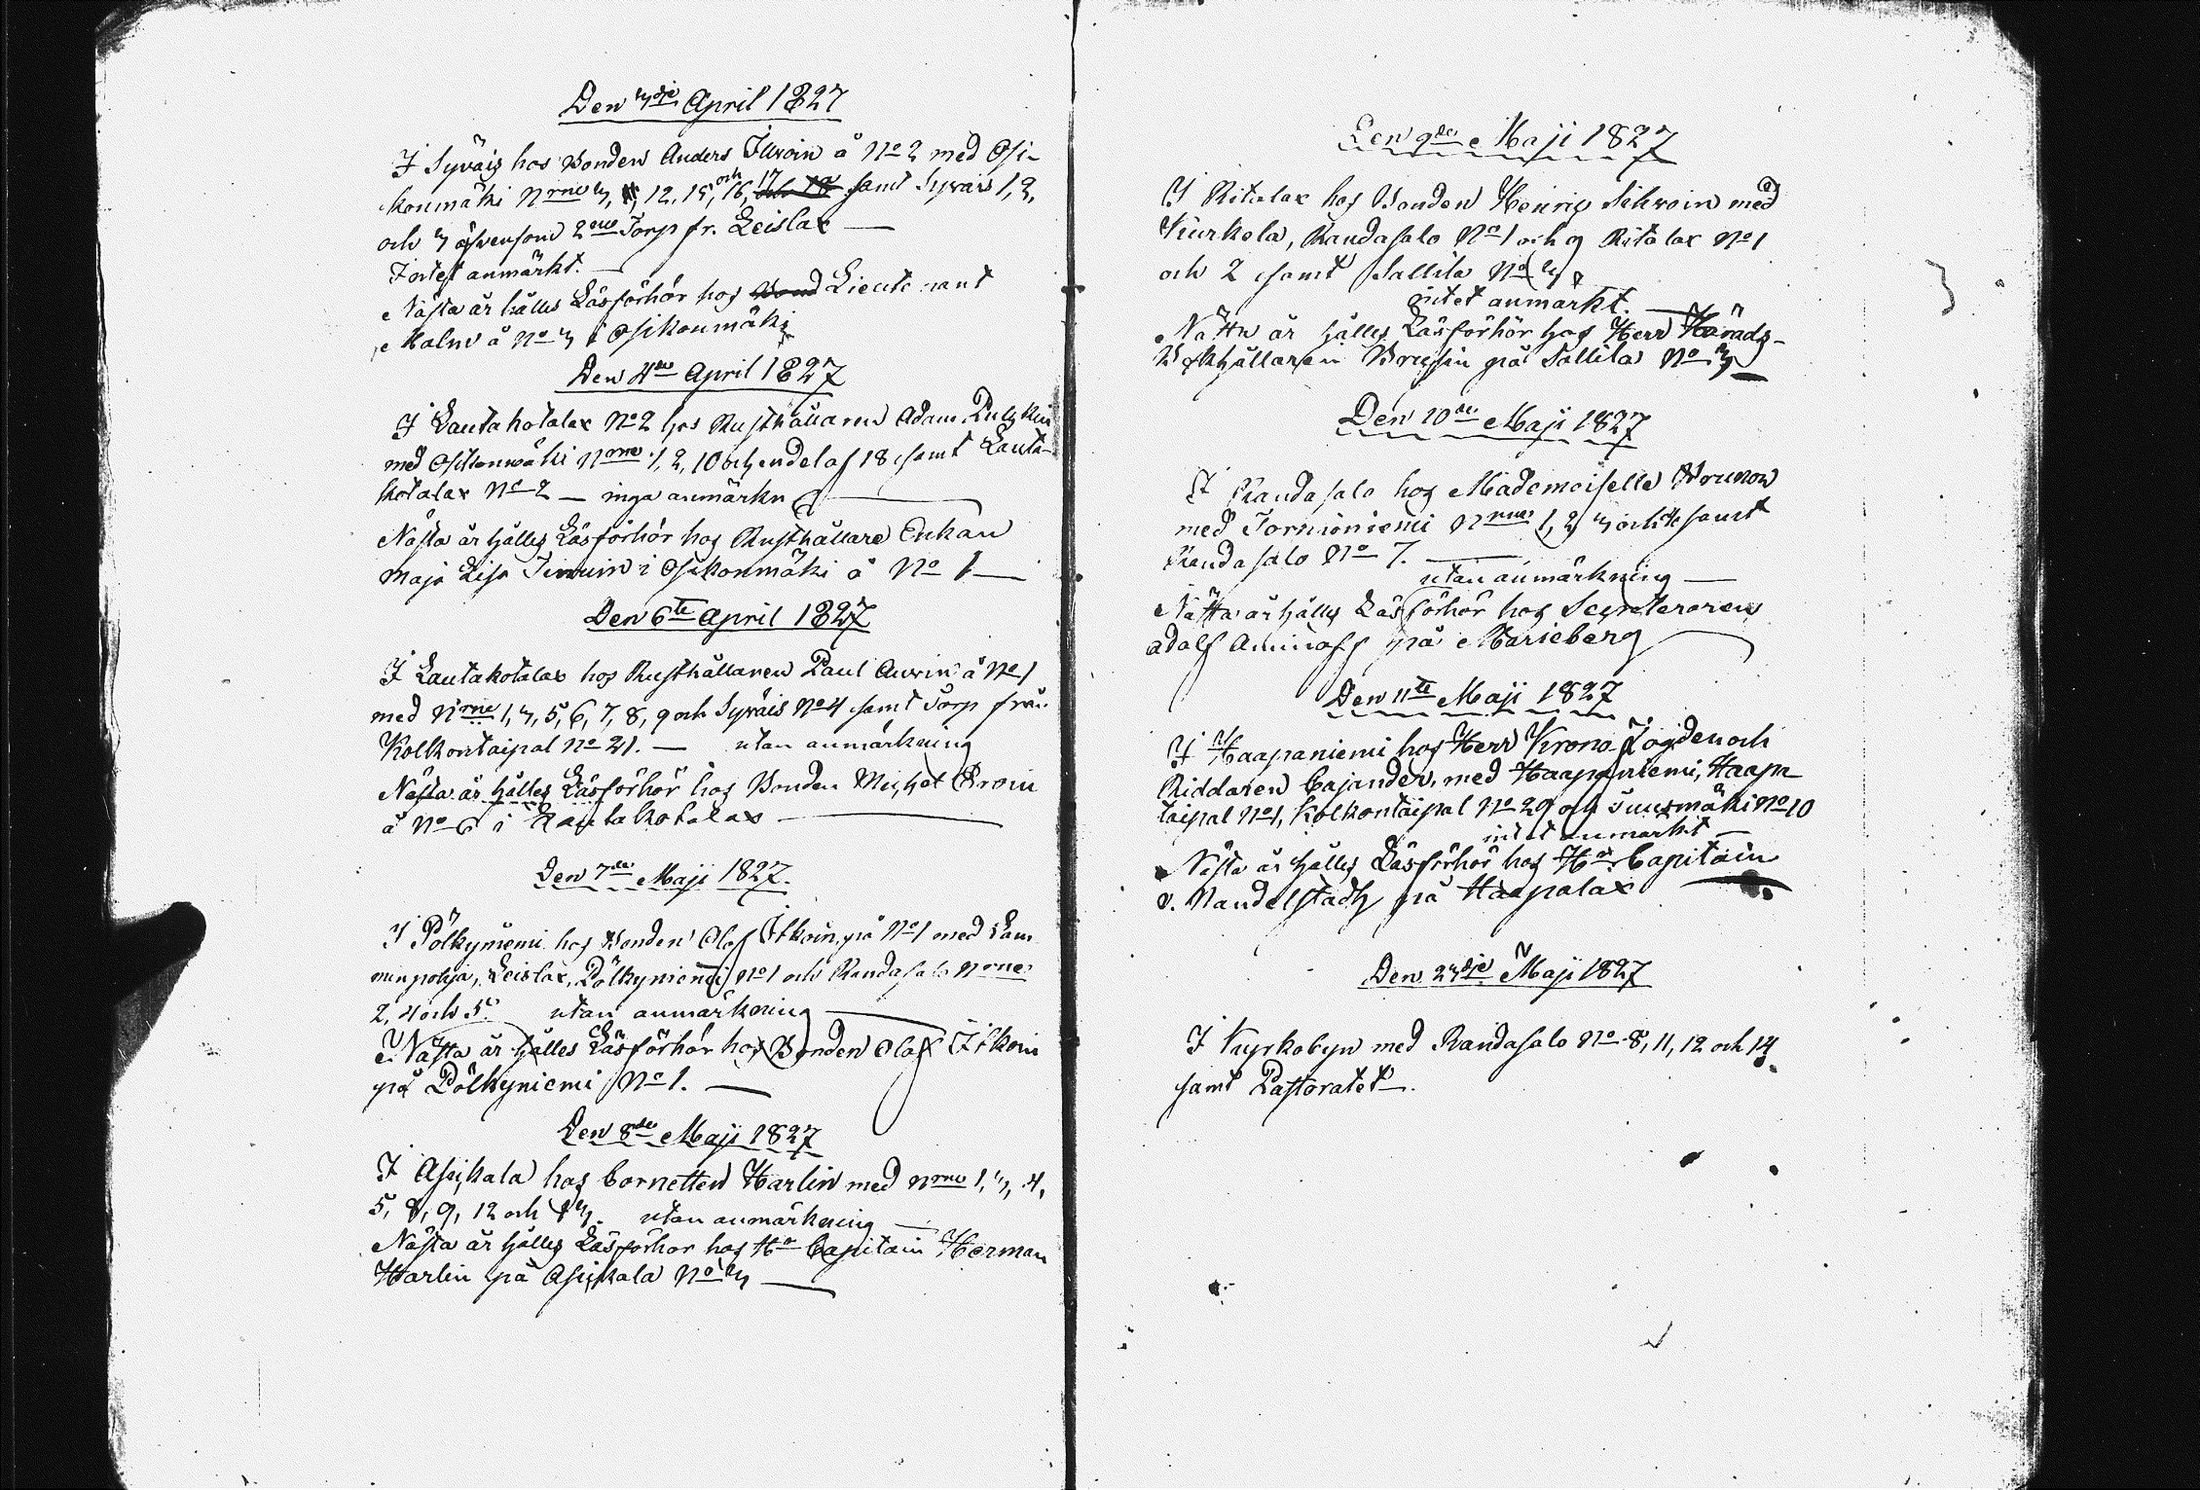 Den 3dje April 1827
I Syväis hos Bonden Anders Ilvoin å No 2 med Osi-
konmäki Nrne 3, 12, 15, och 16, 17 samt Syväis 1, 2,
och 3 äfvensom 2ne Torp fr. Leislax
Intet anmärkt.
Nästa år hålles Läsförhör hos Lieutenant
Malm å No 3 i Osikonmäki
Den 4de April 1827
I Lautakotalax No 2 hos Rusthållaren Adam
med Osikonmäki Nrne 1, 2, 10 och endel af 18 samt Lauta-
kotalax No 2 — inga anmärkn
Nästa år hålles Läsförhör hos Rusthållare Enkan
Maja Lisa i Osikonmäki å No 1
Den 6te April 1827
I Lautakotalax hos Rusthållaren Paul Auvin å No 1
med Nrne 1, 3, 5, 6, 7, 8, 9 och Syväis No 4 samt Torp från
Kolkontaipal No 21. — utan anmärkning
Nästa år hålles Läsförhör hos Bonden Michel
å No 6 i Lautakotalax
Den 7de Maji 1827.
I Pölkyniemi hos Bonden Olof Itkoin på No 1 med Lam
minpohja, Leislax, Pölkyniemi No 1 och Randasalo Nrne
2, 4 och 5. utan anmärkning
Nästa år hålles Läsförhör hos Bonden Olof Itkoin
på Pölkyniemi No 1.
Den 8de Maji 1827
I Asikala hos Cornetten Harlin med Nrne 1, 3, 4,
5, 8, 9, 12 och utan anmärkning
Nästa år hålles Läsförhör hos Hr Capitain Herman
Harlin på Asikala No 3
Den 9de Maji 1827
I Ritalax hos Bonden Henric Silvoin med
Kiurkela, Randasalo No 1 och 9 Ritalax No 1
och 2 samt Sallila No 3
intet anmärkt.
Nästa år hålles Läsförhör hos Herr Härads-
Brusin på Sallila No 3
Den 10de Maji 1827
I Randasalo hos Mademoiselle Brunow
med Torniöniemi Nrne 1, 2, 3 och 4 samt
Randasalo No 7.
utan anmärkning
Nästa år hålles Läsförhör hos Secreteraren
Adolf Aminoff på Marieberg
Den 11te Maji 1827
I Haapaniemi hos Herr Krono Fogden och
Riddaren Cajander, med Haapaniemi, Haapa
taipal No 1, Kolkontaipal No 29 och Suurmäki No 10
intet anmärkt
Nästa år hålles Läsförhör hos Hr Capitain
v. Nandelstadh på Haapalax
Den 23dje Maji 1827
I Kyrkobyn med Randasalo No 8, 11, 12 och 14
samt Pastoratet.